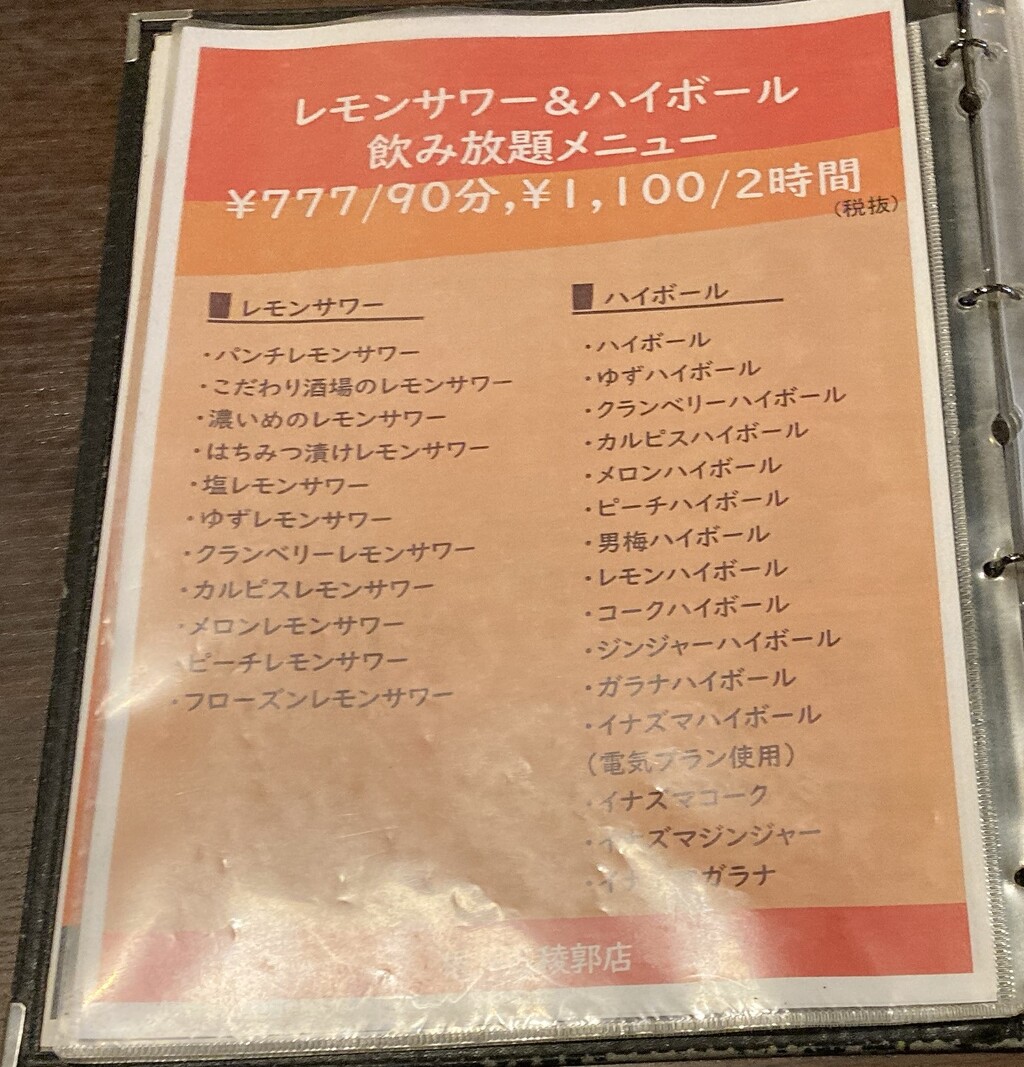 レモンサワー&ハイボール
飲み放題メニュー
¥777/90分,¥1,100/2時間
(税抜)
レモンサワー
・パンチレモンサワー
・こだわり酒場のレモンサワー
・濃いめのレモンサワー
・はちみつ漬けレモンサワー
・塩レモンサワー
・ゆずレモンサワー
・クランベリーレモンサワー
・カルピスレモンサワー
・メロンレモンサワー
ピーチレモンサワー
・フローズンレモンサワー
ハイボール
・ハイボール
・ゆずハイボール
・クランベリーハイボール
・カルピスハイボール
・メロンハイボール
・ピーチハイボール
・男梅ハイボール
・レモンハイボール
・コークハイボール
・ジンジャーハイボール
・ガラナハイボール
・イナズマハイボール
(電気ブラン使用)
・イナズマコーク
・イナズマジンジャー
ガラナ
稜郭店